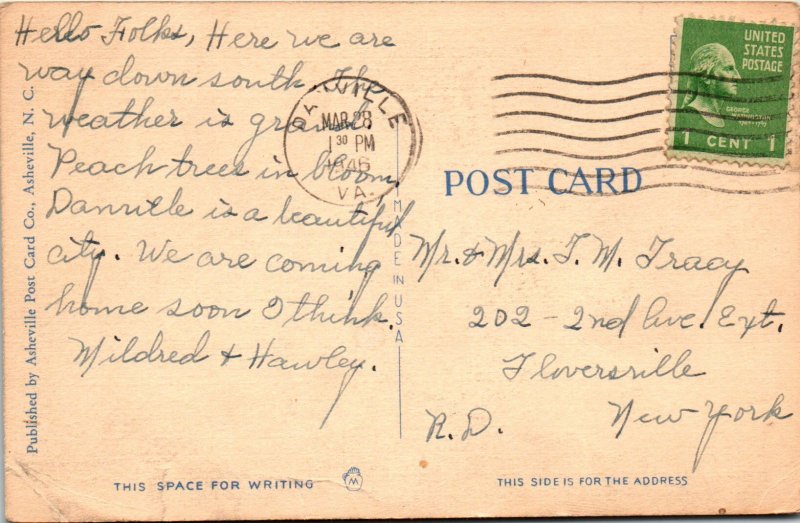 Hello Folks, Here we are
way down south. The
weather is grand,
Peach trees in bloom,
Danville is a beautiful
city. We are coming
home soon I think.
Mildred & Hawley.
DANVILLE
MAR 28
1 30 PM
1946
VA.
UNITED
STATES
POSTAGE
GEORGE
WASHINGTON
1 CENT 1
POST CARD
Mr. & Mrs. T. M. Tracy
202 - 2nd Ave. Ext.
Gloversville
New York
R.D.
Published by Asheville Post Card Co., Asheville, N. C.
MADE IN USA
THIS SPACE FOR WRITING
THIS SIDE IS FOR THE ADDRESS